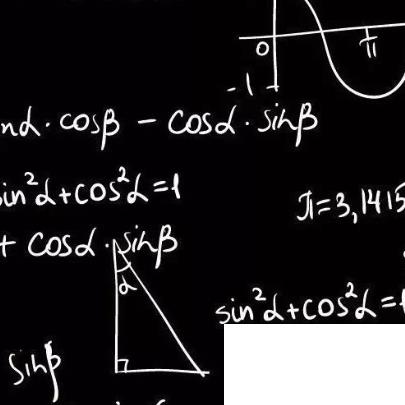 0
π
-1
nα · cosβ - cosα · sinβ
in²α+cos²α=1
π=3,1415
+ cosα · sinβ
α
sin²α+cos²α=
sinβ